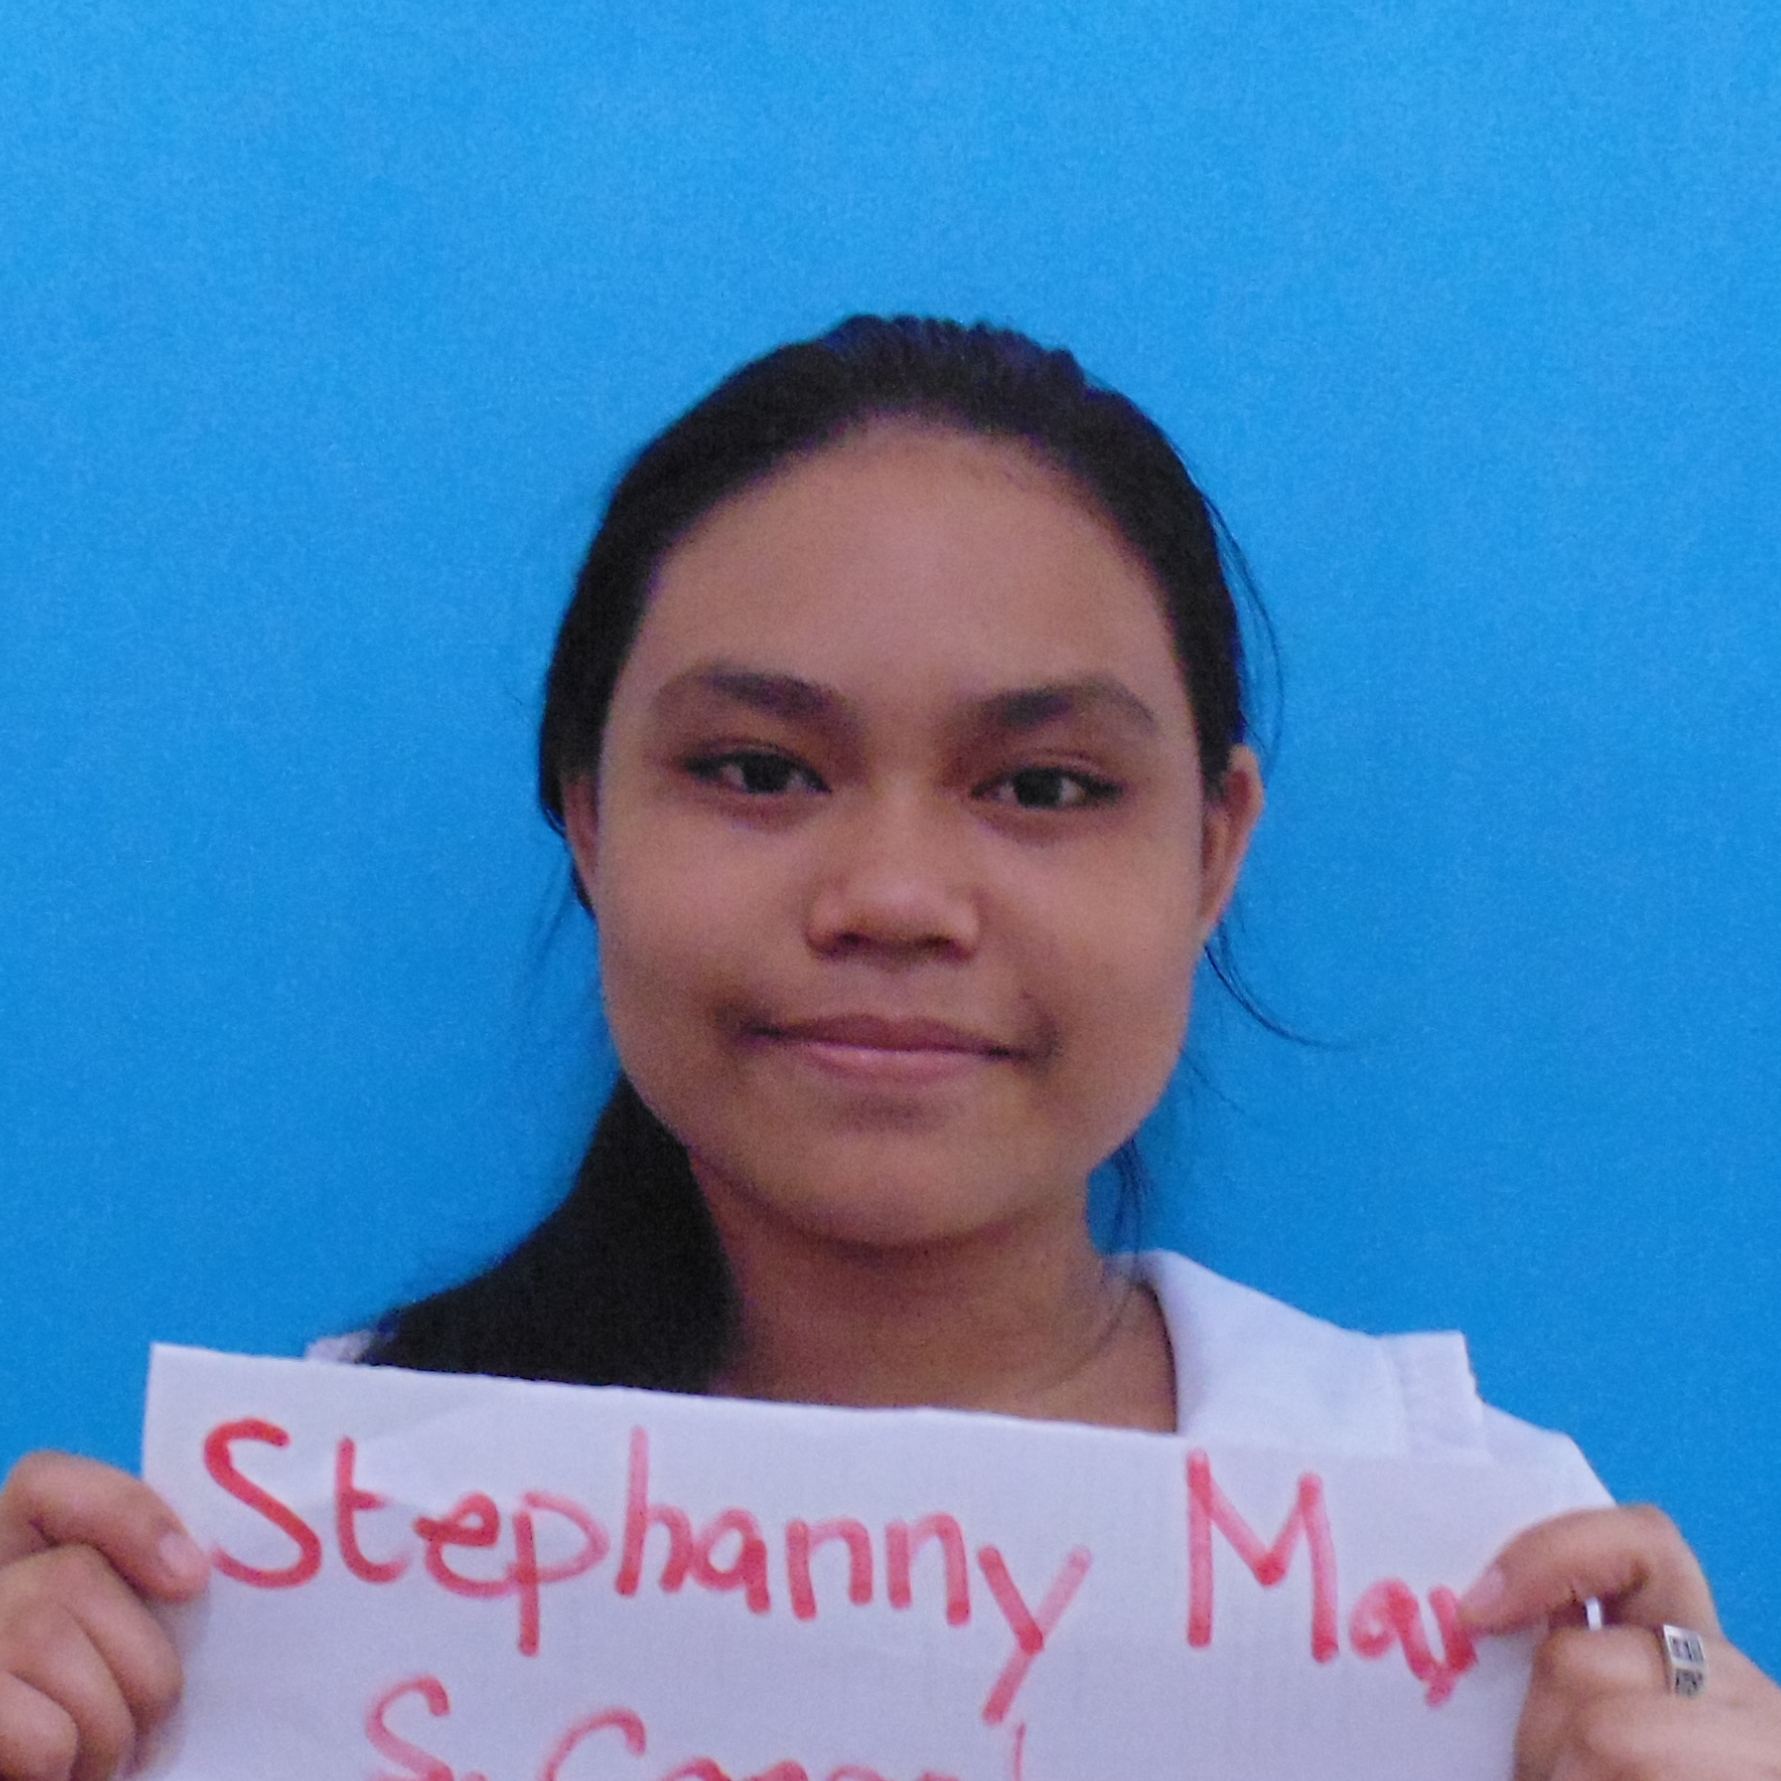 Stephanny May
S.